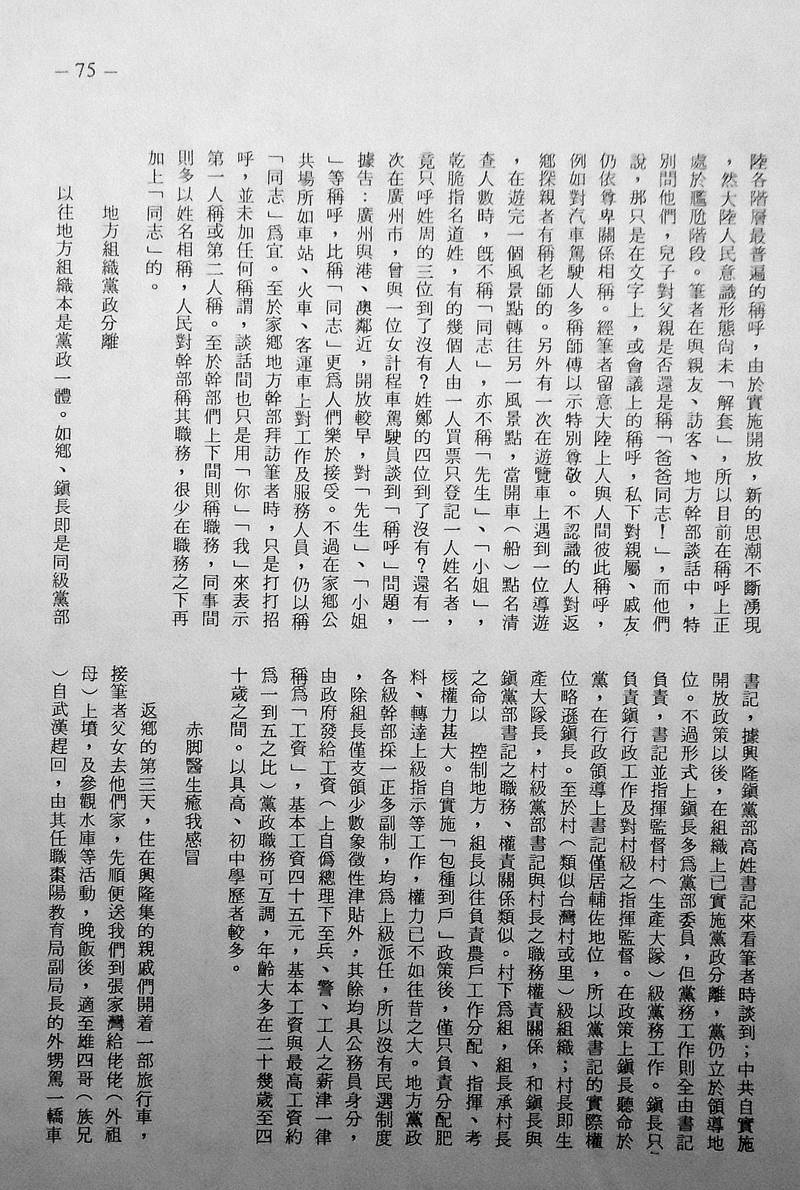 — 75 —
陸各階層最普遍的稱呼，由於實施開放，新的思潮不斷湧現
，然大陸人民意識形態尚未「解套」，所以目前在稱呼上正
處於尷尬階段。筆者在與親友、訪客、地方幹部談話中，特
別問他們，兒子對父親是否還是稱「爸爸同志！」，而他們
說，那只是在文字上，或會議上的稱呼，私下對親屬、戚友
仍依尊卑關係相稱。經筆者留意大陸上人與人間彼此稱呼，
例如對汽車駕駛人多稱師傅以示特別尊敬。不認識的人對返
鄉探親者有稱老師的。另外有一次在遊覽車上遇到一位導遊
，在遊完一個風景點轉往另一風景點，當開車（船）點名清
查人數時，旣不稱「同志」，亦不稱「先生」、「小姐」，
乾脆指名道姓，有的幾個人由一人買票只登記一人姓名者，
竟只呼姓周的三位到了沒有？姓鄭的四位到了沒有？還有一
次在廣州市，曾與一位女計程車駕駛員談到「稱呼」問題，
據告：廣州與港、澳鄰近，開放較早，對「先生」、「小姐
」等稱呼，比稱「同志」更爲人們樂於接受。不過在家鄉公
共場所如車站、火車、客運車上對工作及服務人員，仍以稱
「同志」爲宜。至於家鄉地方幹部拜訪筆者時，只是打打招
呼，並未加任何稱謂，談話間也只是用「你」「我」來表示
第一人稱或第二人稱。至於幹部們上下間則稱職務，同事間
則多以姓名相稱，人民對幹部稱其職務，很少在職務之下再
加上「同志」的。
地方組織黨政分離
以往地方組織本是黨政一體。如鄉、鎭長即是同級黨部
書記，據興隆鎭黨部高姓書記來看筆者時談到；中共自實施
開放政策以後，在組織上已實施黨政分離，黨仍立於領導地
位。不過形式上鎭長多爲黨部委員，但黨務工作則全由書記
負責，書記並指揮監督村（生產大隊）級黨務工作。鎭長只
負責鎭行政工作及對村級之指揮監督。在政策上鎭長聽命於
黨，在行政領導上書記僅居輔佐地位，所以黨書記的實際權
位略遜鎭長。至於村（類似台灣村或里）級組織；村長即生
產大隊長，村級黨部書記與村長之職務權責關係，和鎭長與
鎭黨部書記之職務、權責關係類似。村下爲組，組長承村長
之命以　控制地方，組長以往負責農戶工作分配、指揮、考
核權力甚大。自實施「包種到戶」政策後，僅只負責分配肥
料、轉達上級指示等工作，權力已不如往昔之大。地方黨政
各級幹部採一正多副制，均爲上級派任，所以沒有民選制度
，除組長僅支領少數象徵性津貼外，其餘均具公務員身分，
由政府發給工資（上自僞總理下至兵、警、工人之薪津一律
稱爲「工資」，基本工資四十五元，基本工資與最高工資約
爲一到五之比）黨政職務可互調，年齡大多在二十幾歲至四
十歲之間。以具高、初中學歷者較多。
赤脚醫生癒我感冒
返鄉的第三天，住在興隆集的親戚們開着一部旅行車，
接筆者父女去他們家，先順便送我們到張家灣給佬佬（外祖
母）上墳，及參觀水庫等活動，晚飯後，適至雄四哥（族兄
）自武漢趕回，由其任職棗陽教育局副局長的外甥駕一轎車